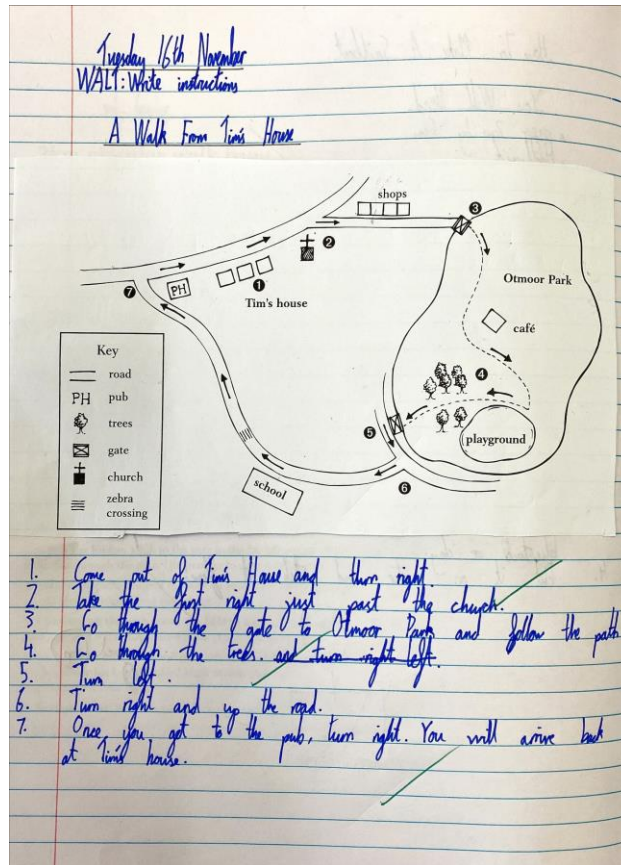 Tuesday 16th November
WALT: Write instructions
A Walk From Tim's House
shops
3
2
Otmoor Park
1
7
PH
Tim's house
café
Key
road
4
PH pub
trees
5
playground
gate
6
church
school
zebra
crossing
1. Come out of Tim's House and thurn right.
2. Take the first right just past the church.
3. Go through the gate to Otmoor Park and follow the path
4. Go through the trees. and turn right left.
5. Turn left.
6. Turn right and up the road.
7. Once you get to the pub, turn right. You will arrive back
at Tim's house.